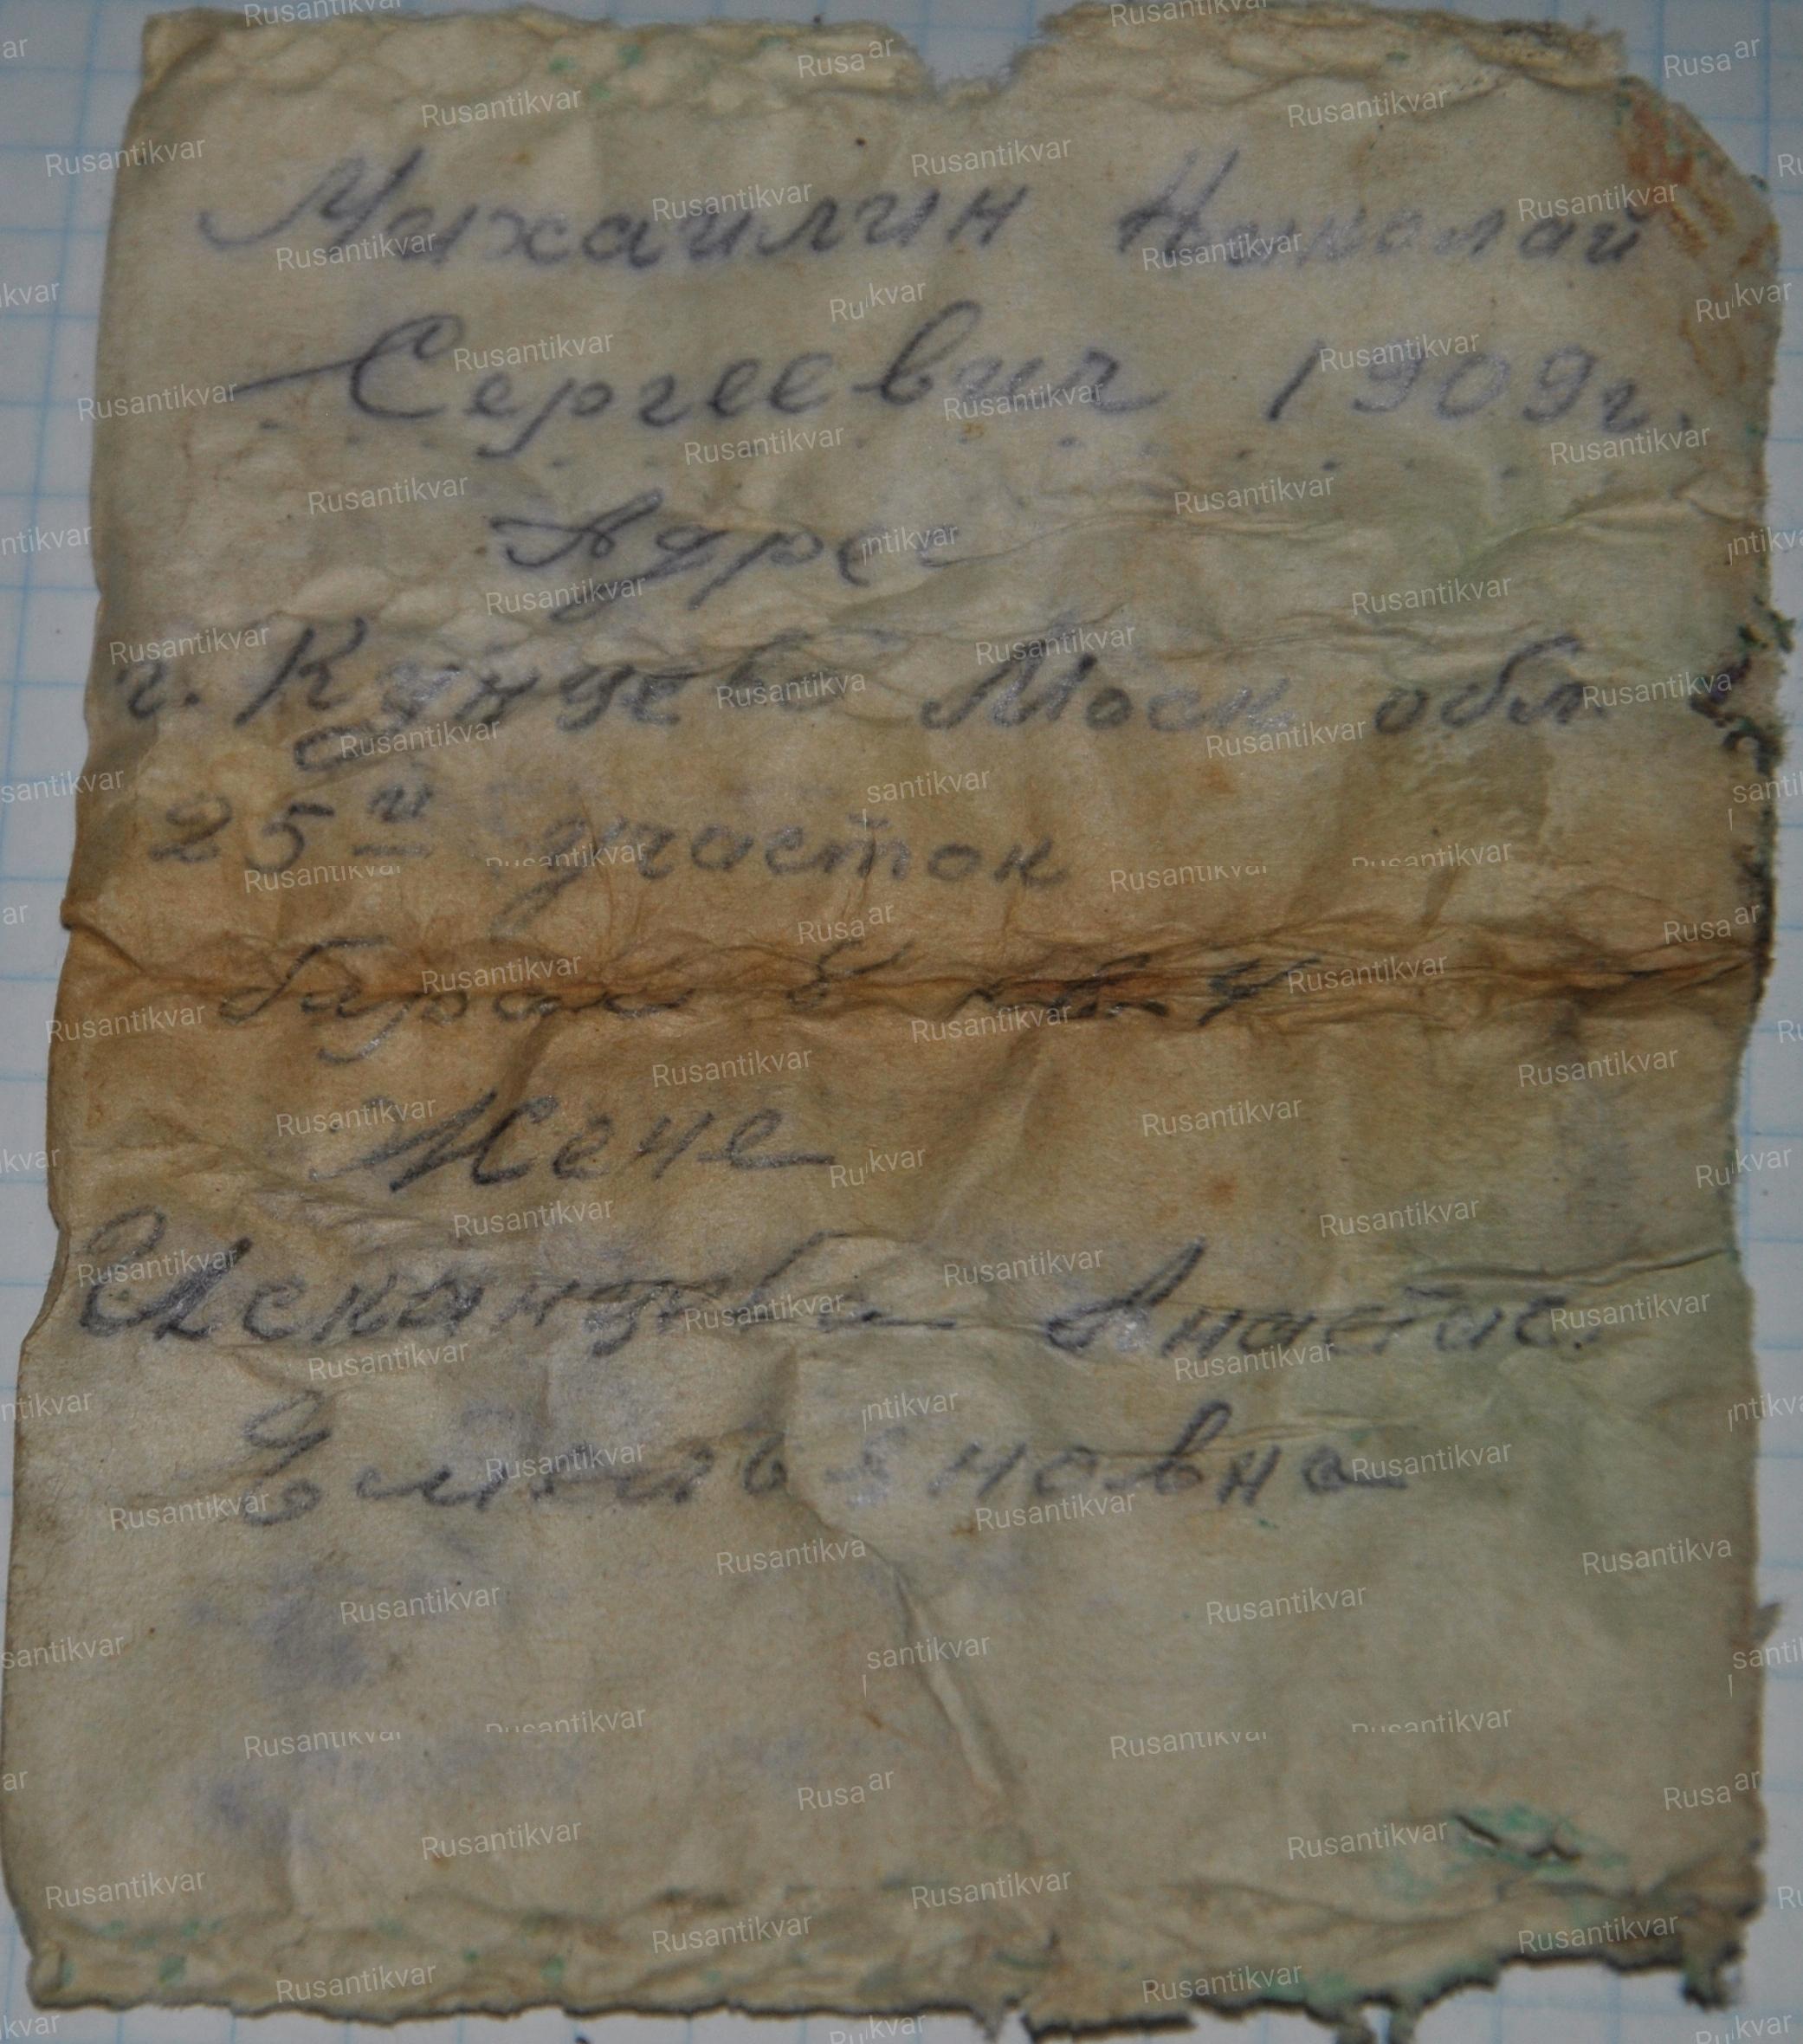 Михайлин Николай
Сергеевич 1909г.
Адрес
г. Кунцево Моск обл
25й участок
барак 8 кв. 4
Жене
Анастас.
Емельяновна
Rusantikvar